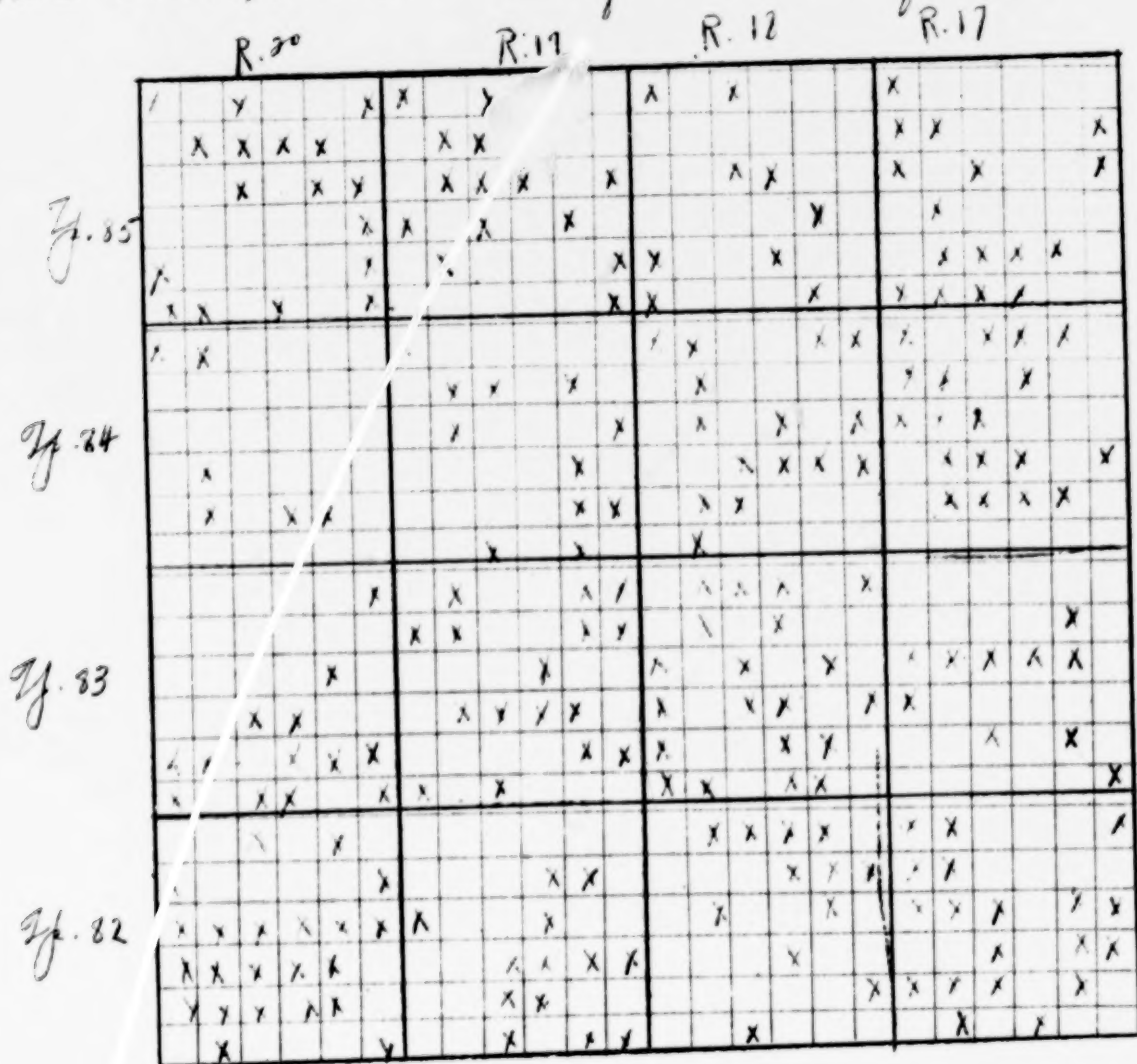 R. 20 R. 19 R. 18 R. 17
Tp. 85
Tp. 84
Tp. 83
Tp. 82